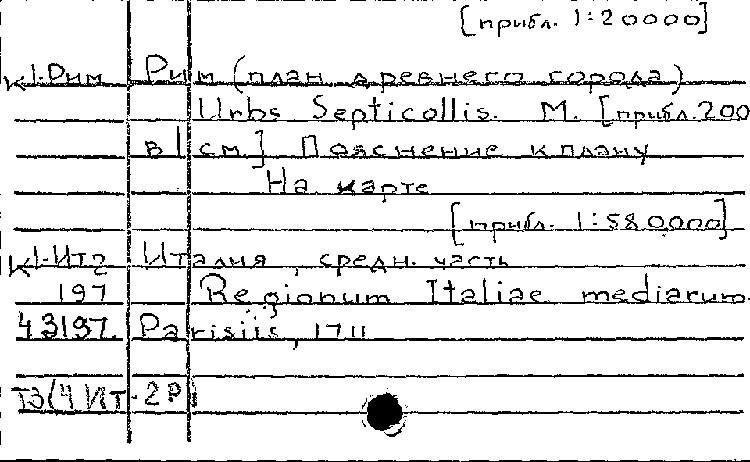 [прибл. 1:20000]
К1-Рим Рим (план древнего города)
Urbs Septicollis. М. [прибл. 200
в 1 см.] Пояснение к плану
На карте
[прибл. 1:580000]
К1-Ит2 Италия, средн. часть
197 Regionum Italiae mediarum
43197 Parisiis, 1711
Т3(4Ит-2Р)